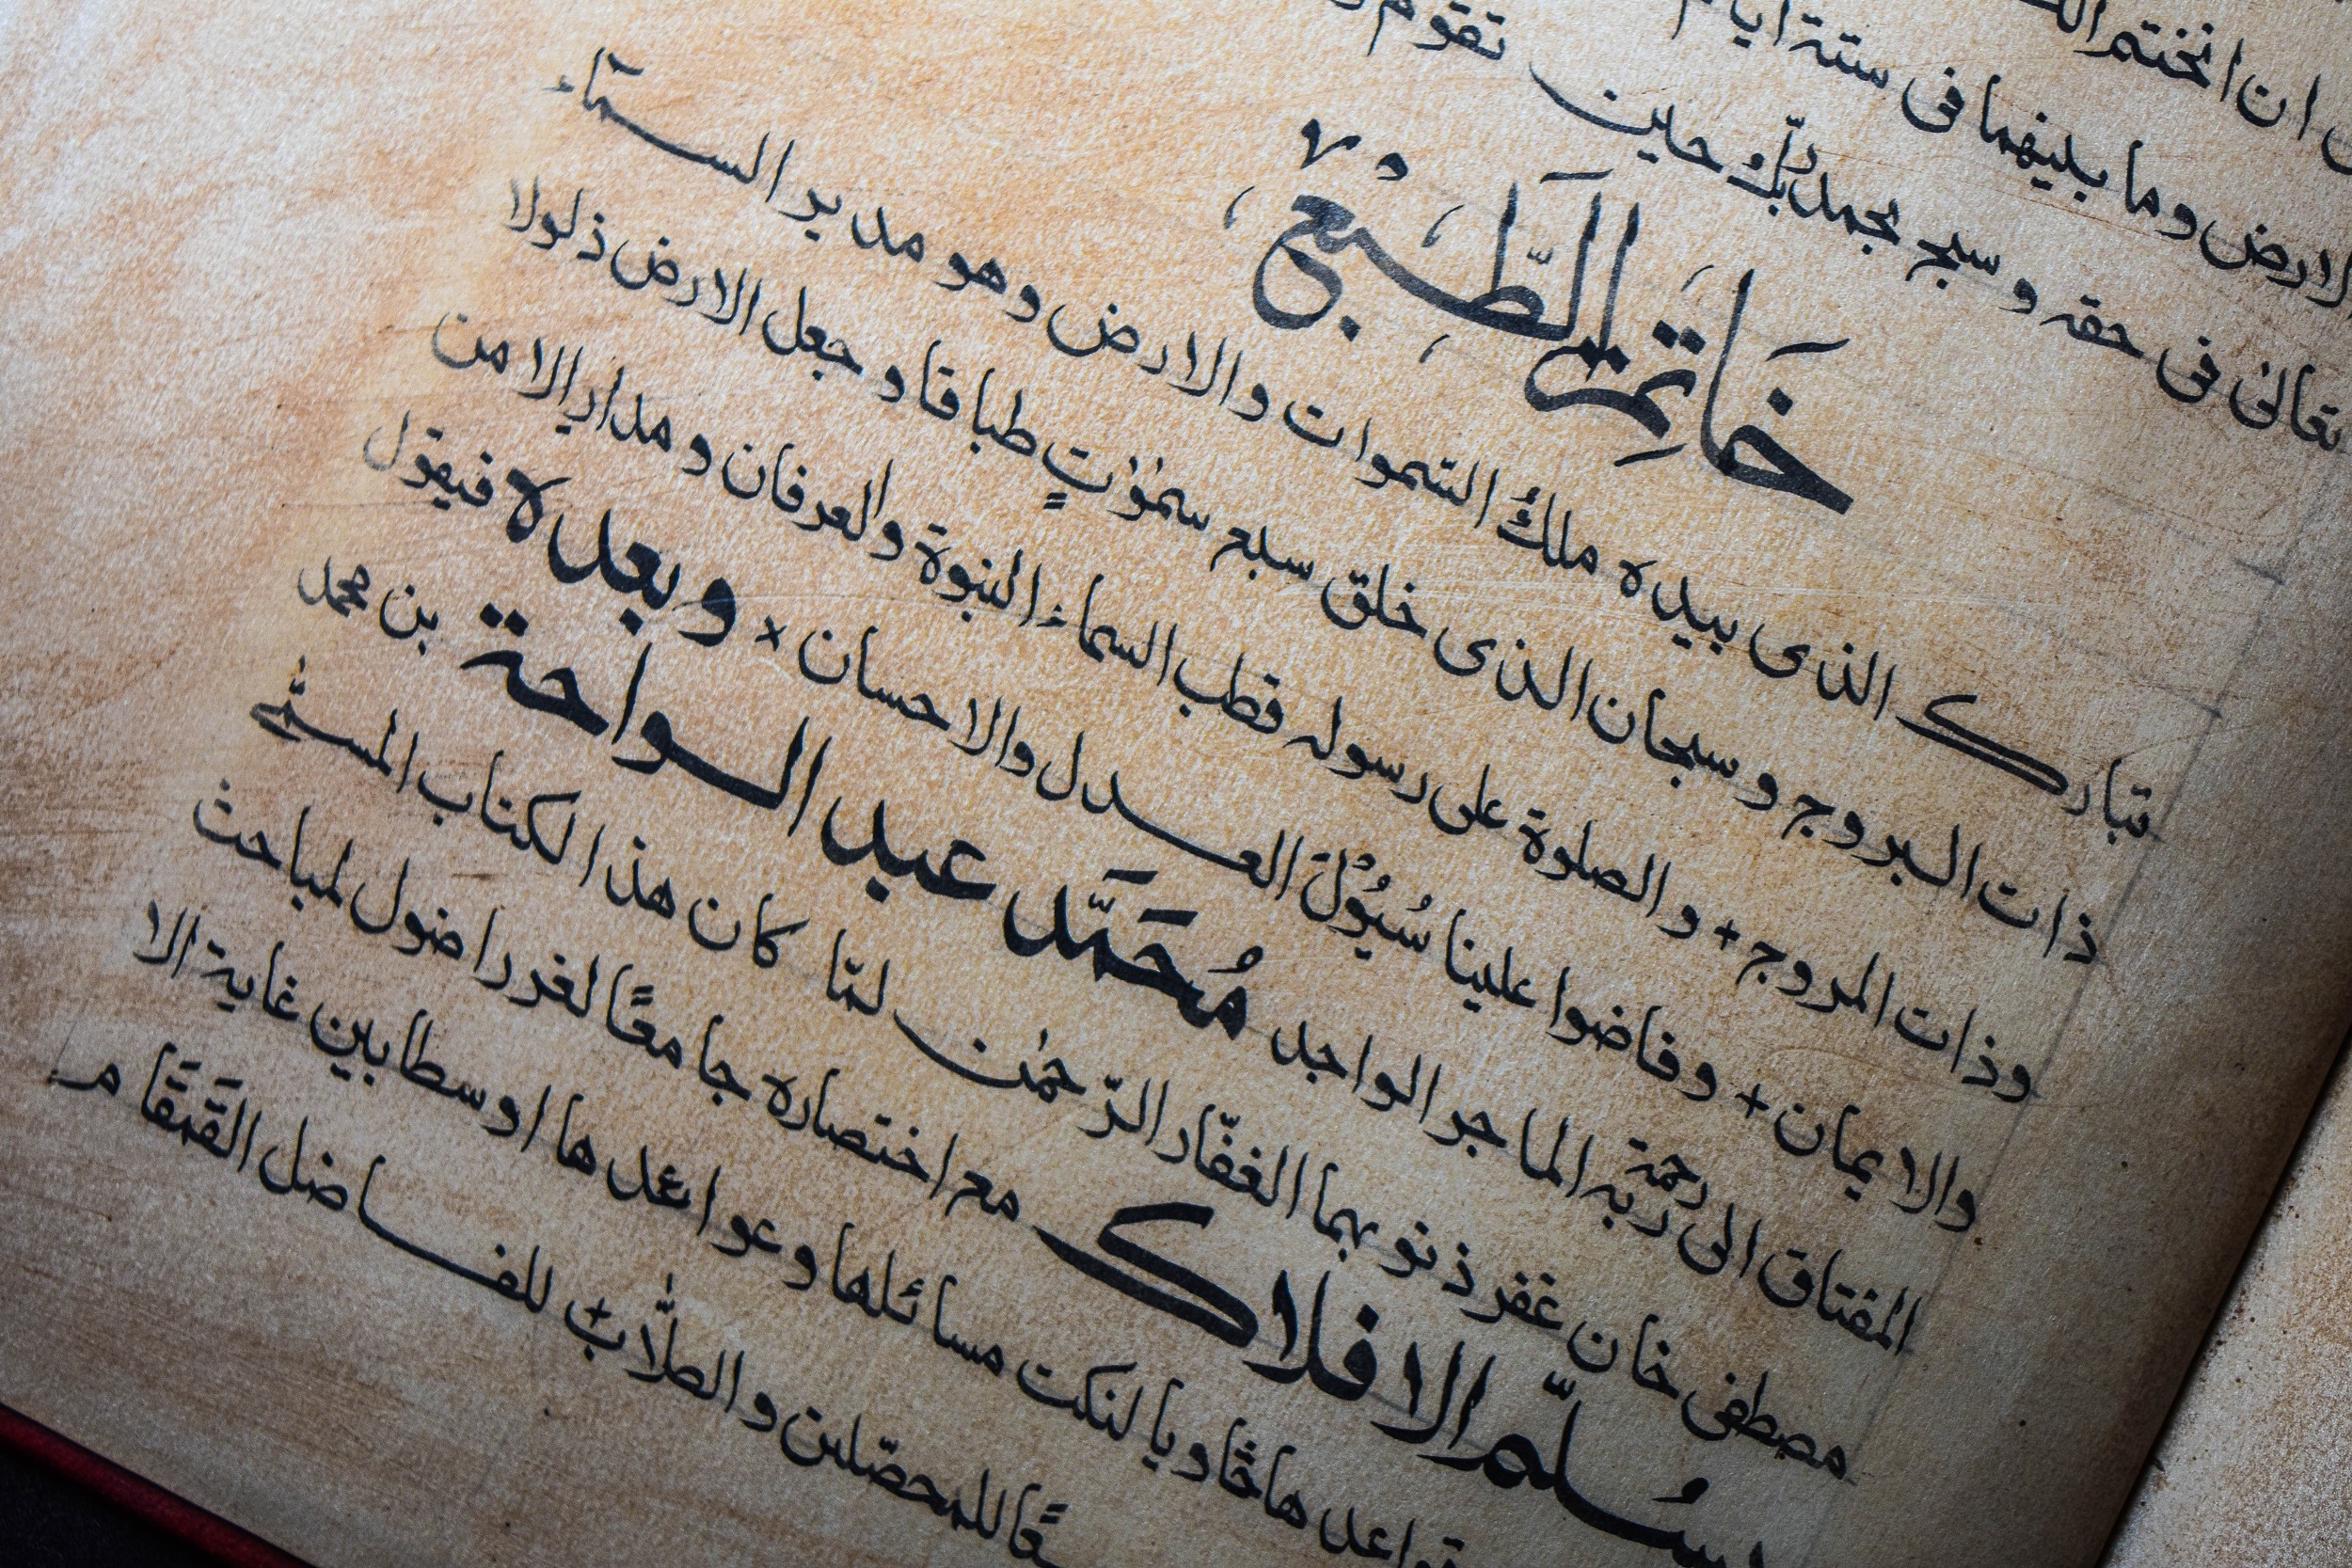 ان اختتم
الارض وما بينهما فى ستة ايام
تعالىٰ فى حقه و سبح بحمد ربّك حين تقوم
خَاتِمَةُ الطَّبْعِ
تبارك الذى بيده ملكُ السّموات والارض وهو مدير السمآء
ذات البروج و سبحان الذى خلق سبع سمٰوٰتٍ طباقا و جعل الارض ذلولا
وذات المروج + و الصلوة على رسوله قطب السماء النبوة والعرفان و مدار الامن
والايمان + وفاضوا علينا سُيُوْلَ العدل والاحسان × وبعده فيقول
المفتاق الى رحمة ربه الماجر الواجد مُحَمَّد عبد الواحة بن محمد
مصطفى خان غفر ذنوبهما الغفّار الرّحمٰن لمّا كان هذا الكتاب المسمّٰى
بسُلّم الافلاك مع اختصاره جامعًا لغرر اضول لمباحث
قواعدها حاويا لنكت مسائلها وعوائدها اوسطا بين غاية الا
للمحصّلين و الطلّاب + للفاضل القَمْقَام